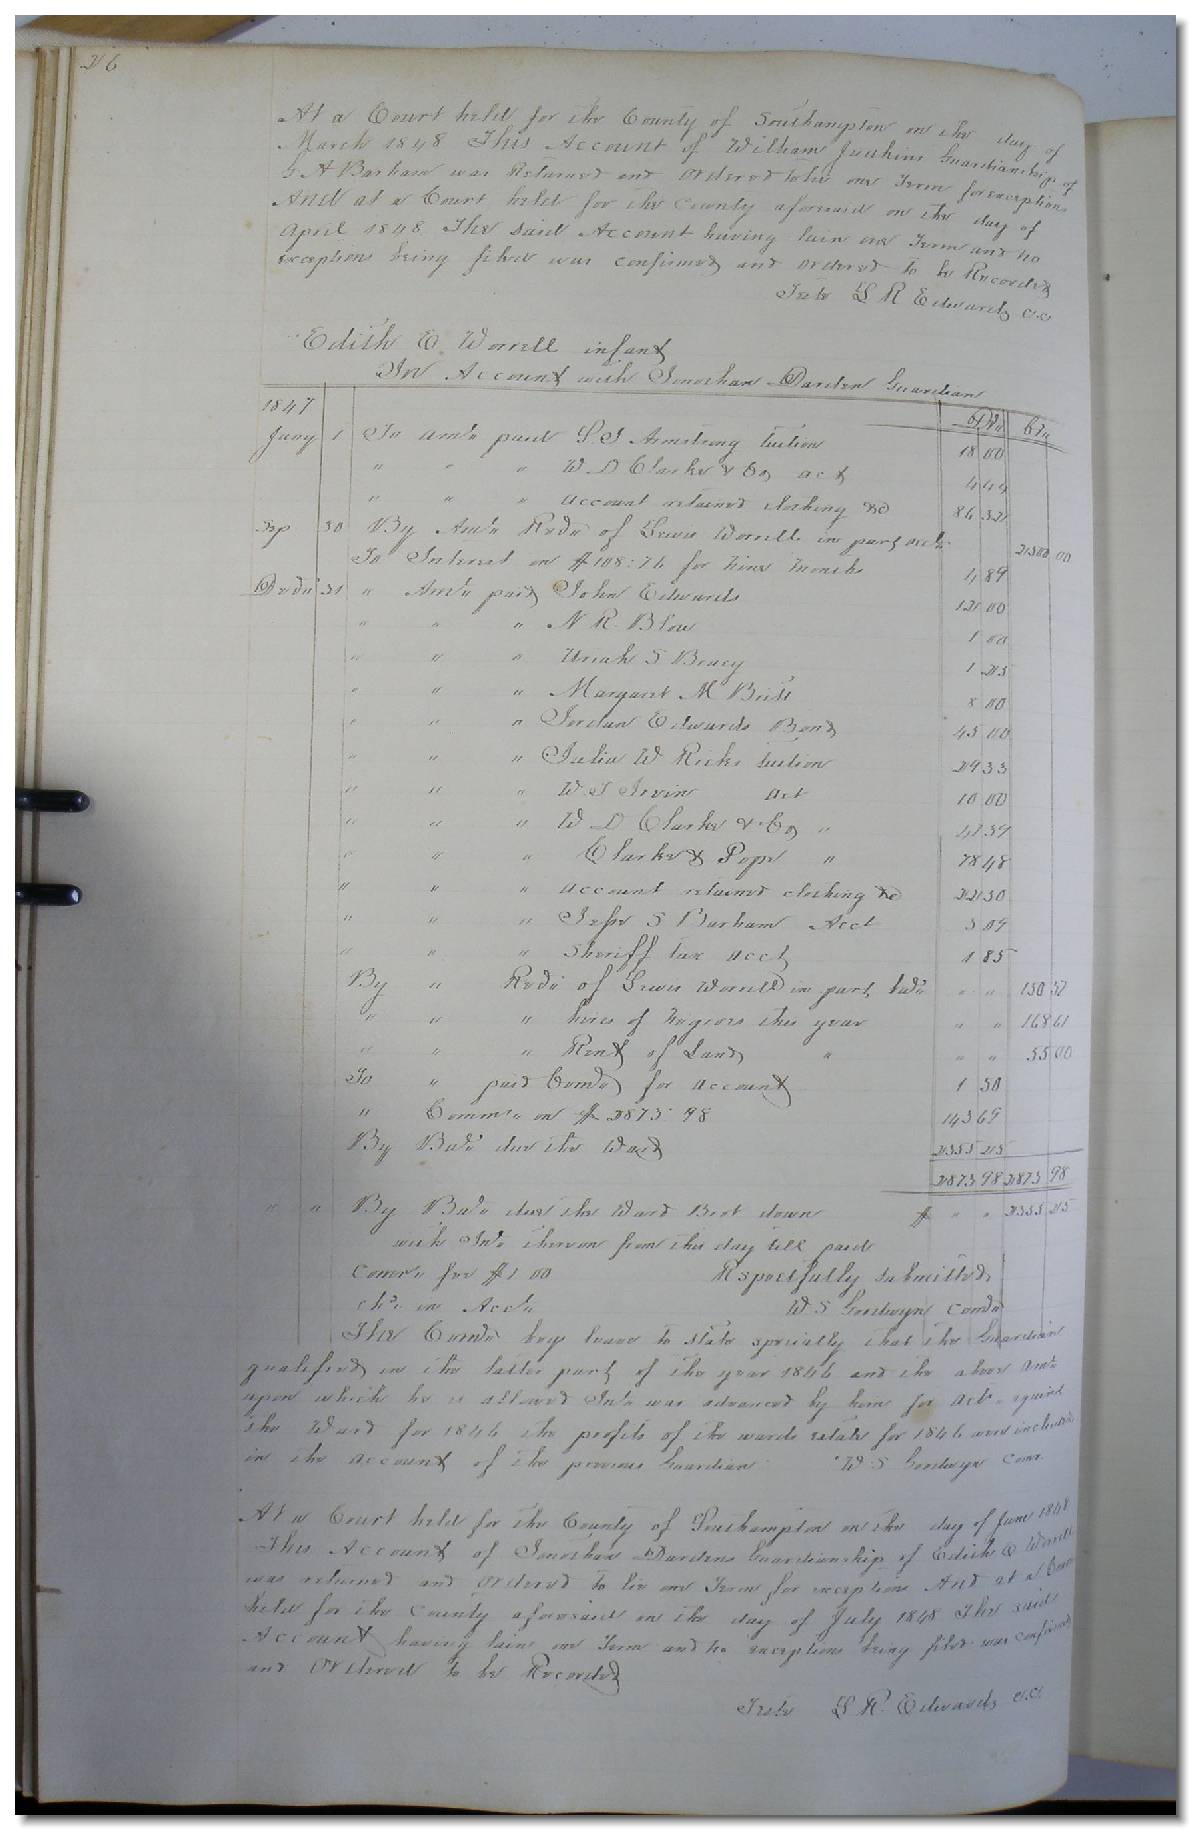 26
At a Court held for the County of Southampton on the day of
March 1848 This Account of William Judkins Guardianship of
A Barham was Returned and Ordered to lie one Term for exceptions
And at a Court held for the County aforesaid on the day of
April 1848 The said Account having lain one Term and no
exceptions being filed was confirmed and Ordered to be Recorded
Teste L R Edwards C.C
Edith E. Worrell infant
In Account with Jonathan Darden Guardian
1847 Dr. Cr.
Jany 1 To amt. paid S. J Armstrong tuition 18 00
" " " W D Clarke & Co act 4 44
" " " account retained clothing &c 86 32
Sep 30 By Amt. Recd. of Lewis Worrell in part 2300 00
To Interest on $108:76 for nine months 4 89
Decr. 31 " Amt. paid John Edwards 12 00
" " " N R. Blow 1 00
" " " Uriah S Bracy 1 25
" " " Margaret M Britt 8 00
" " " Jordan Edwards Bond 45 00
" " " Julia W Ricks tuition 29 33
" " " W. T Irvin act 10 00
" " " W D Clarke & Co " 42 39
" " " Clarke & Pope " 78 48
" " " account retained clothing &c 22 30
" " " Jesse S Barham Acct 5 09
" " " Sheriff tax acct 1 85
By " Recd. of Lewis Worrell in part " " 150 37
" " " hires of Negroes this year " " 168 61
" " " Rent of Land " " " 55 00
To " paid Comr. for account 1 50
" Comms. on $2873 98 143 69
By Bal. due the Ward 2355 25
2873 98 2873 98
" " By Bal. due the Ward Brot down $ " " 2355 25
with Int. thereon from this day till paid
Comr. fee $1 00 Respectfully submitted
in Act. W. S Goodwyn Comr
The Comr. begs leave to state specially that the Guardian
qualified in the latter part of the year 1846 and the above amt.
upon which he is allowed Int. was advanced by him for acts. against
the Ward for 1846 the profits of the wards estate for 1846 were included
in the account of the previous Guardian W. S Goodwyn Comr.
At a Court held for the County of Southampton on the day of June 1848
This Account of Jonathan Dardens Guardianship of Edith E Worrell
was returned and Ordered to lie one Term for exceptions And at a Court
held for the County aforesaid on the day of July 1848 The said
Account having lain one Term and no exceptions being filed was confirmed
and Ordered to be Recorded
Teste L R. Edwards C.C.